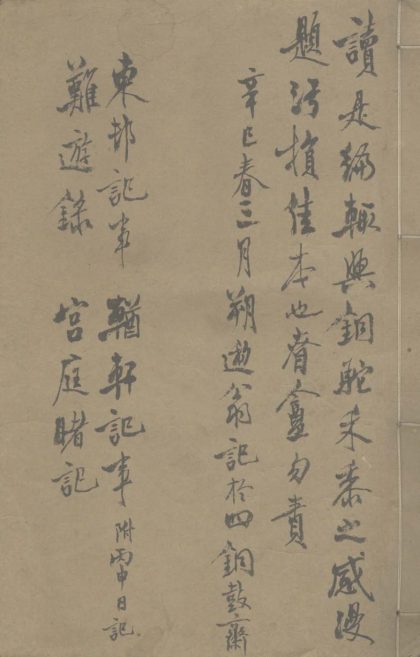 讀是編輒興銅駝禾黍之感漫
題污損佳本也眘盦勿責
辛巳春三月朔遯翁記於四銅鼓齋
東邨記事 輶軒記事 附丙申日記
難遊錄 宮庭睹記